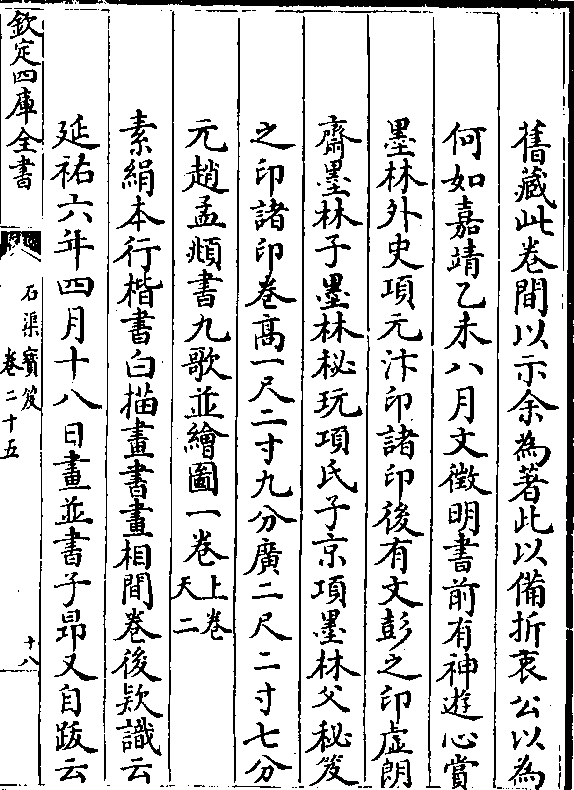 舊藏此卷間以示余為著此以備折衷公以為
何如嘉靖乙未八月文徵明書前有神遊心賞
墨林外史項元汴印諸印後有文彭之印虛朗
齋墨林子墨林秘玩項氏子京項墨林父秘笈
之印諸印卷高一尺二寸九分廣二尺二寸七分
元趙孟頫書九歌並繪圖一卷上卷天二
素絹本行楷書白描畫書畫相間卷後欵識云
延祐六年四月十八日畫並書子昂又自跋云
欽定四庫全書
石渠寶笈
卷二十五
十八